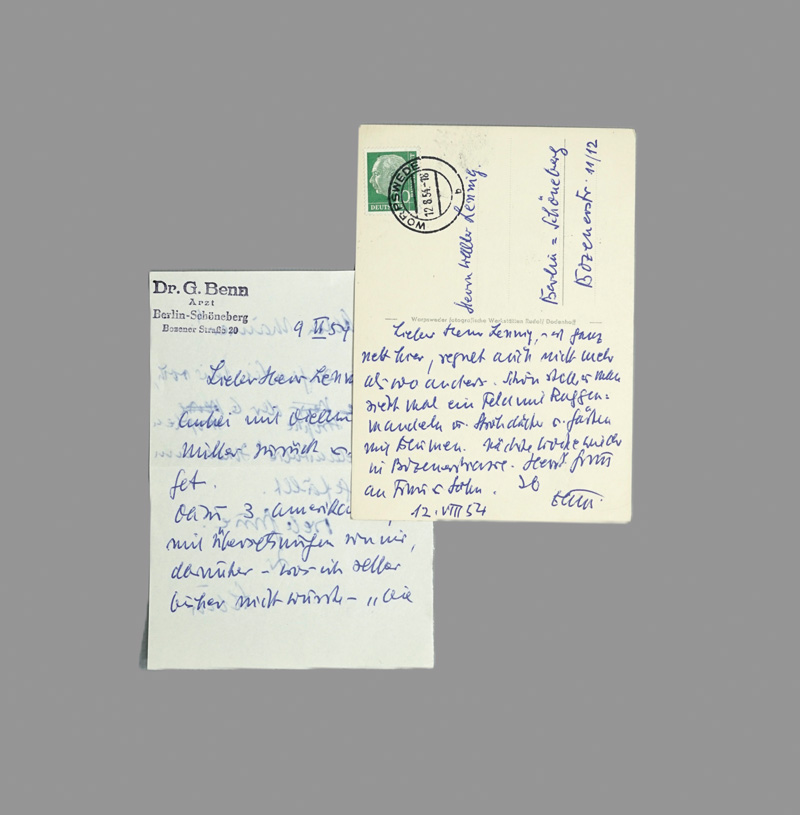 Dr. G. Benn
Arzt
Berlin-Schöneberg
Bozener Straße 20
9 II 54
Lieber Herr Lenn
anbei mit vielem
Miller zurück u.
get.
dazu 3 amerika
mit Übersetzungen von mir,
darunter – was ich selber
bisher nicht wusste – „die
DEUTSCHE
WORPSWEDE
12.8.54.-18
b
Herrn Walter Lennig.
Berlin = Schöneberg
Bozenerstr. 11/12
Worpsweder fotografische Werkstätten Rudolf Dodenhoff
Lieber Herr Lennig, ist ganz
nett hier, regnet auch nicht mehr
als wo anders. Schön still u. man
sieht mal ein Feld mit Roggen=
mandeln u. Strohdächer u. Gärten
mit Blumen. Nächste Woche wieder
in Bozenerstrasse. Herzl. Gruss
an Frau u Sohn. Ihr
Benn.
12. VIII 54